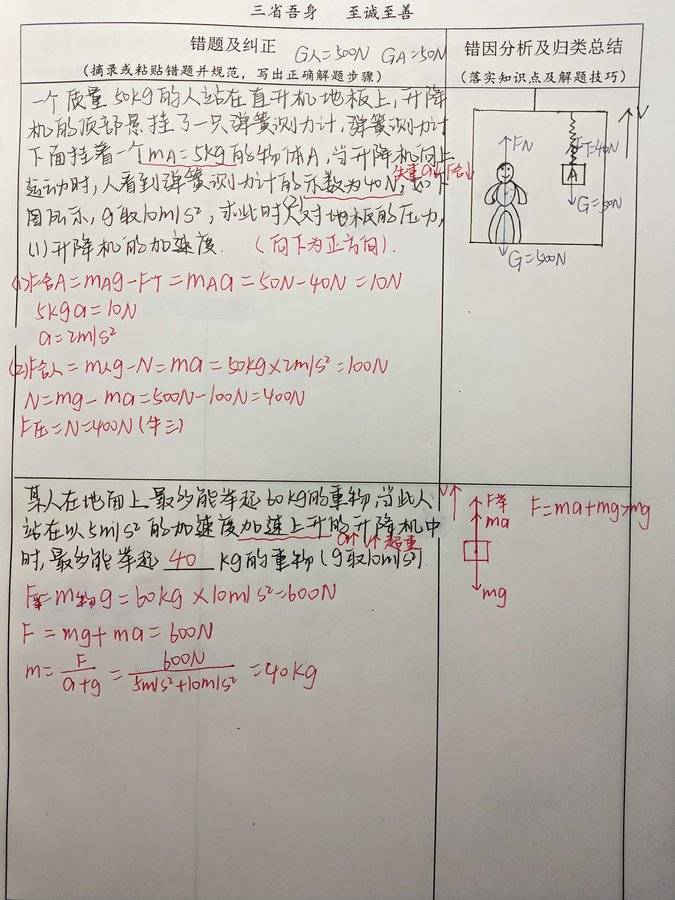 三省吾身 至诚至善
错题及纠正 G人=500N GA=50N
(摘录或粘贴错题并规范，写出正确解题步骤)
错因分析及归类总结
(落实知识点及解题技巧)
一个质量50kg的人站在直升机地板上,升降
机的顶部悬挂了一只弹簧测力计,弹簧测力计
下面挂着一个mA=5kg的物体A,当升降机向上
运动时,人看到弹簧测力计的示数为40N,如下
失重 a↓ F合↓
图所示,g取10m/s²,求此时人对地板的压力,
(2)
(1)升降机的加速度. (向下为正方向).
(1)F合A=mAg-FT=mAa=50N-40N=10N
5kga=10N
a=2m/s²
(2)F合人=m人g-N=ma=50kg×2m/s²=100N
N=mg-ma=500N-100N=400N
F压=N=400N(牛三)
V
FN
FT=40N
A
G=50N
G=500N
某人在地面上最多能举起60kg的重物,当此人
站在以5m/s²的加速度加速上升的升降机中
a↑ V↑ 超重
时,最多能举起 40 kg的重物(g取10m/s²).
F举=m物g=60kg×10m/s²=600N
F=mg+ma=600N
m=F/(a+g)=600N/(5m/s²+10m/s²)=40kg
V
F举
ma
mg
F=ma+mg>mg